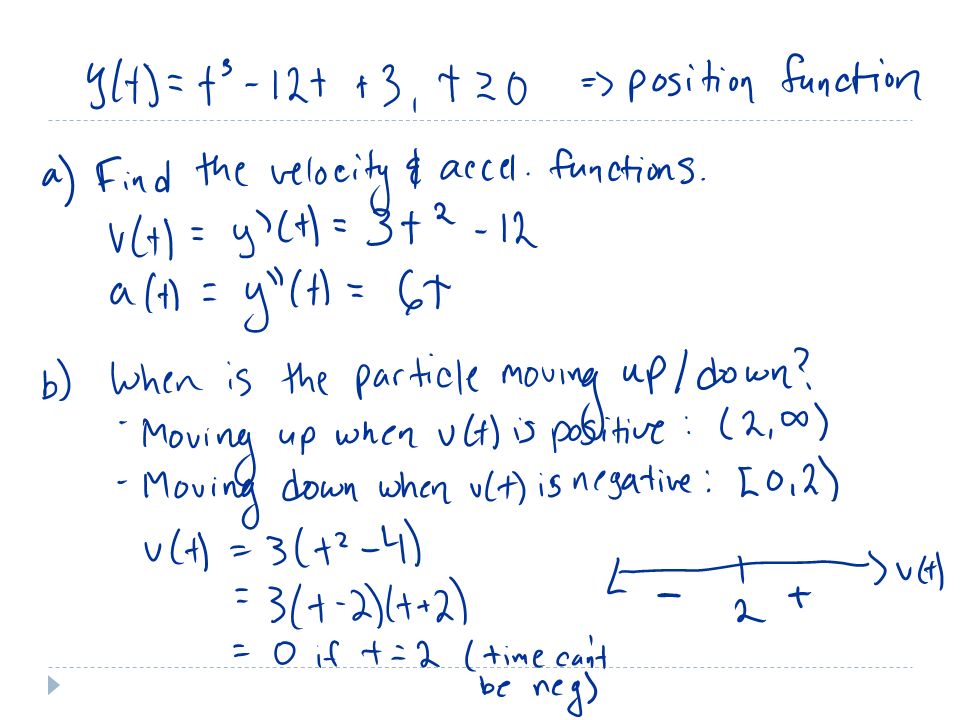 y(t) = t³ - 12t + 3, t ≥ 0 => position function
a) Find the velocity & accel. functions.
v(t) = y'(t) = 3t² - 12
a(t) = y''(t) = 6t
b) When is the particle moving up/down?
- Moving up when v(t) is positive: (2, ∞)
- Moving down when v(t) is negative: [0, 2)
v(t) = 3(t² - 4)
= 3(t - 2)(t + 2)
= 0 if t = 2 (time can't
be neg)
v(t)
- 2 +